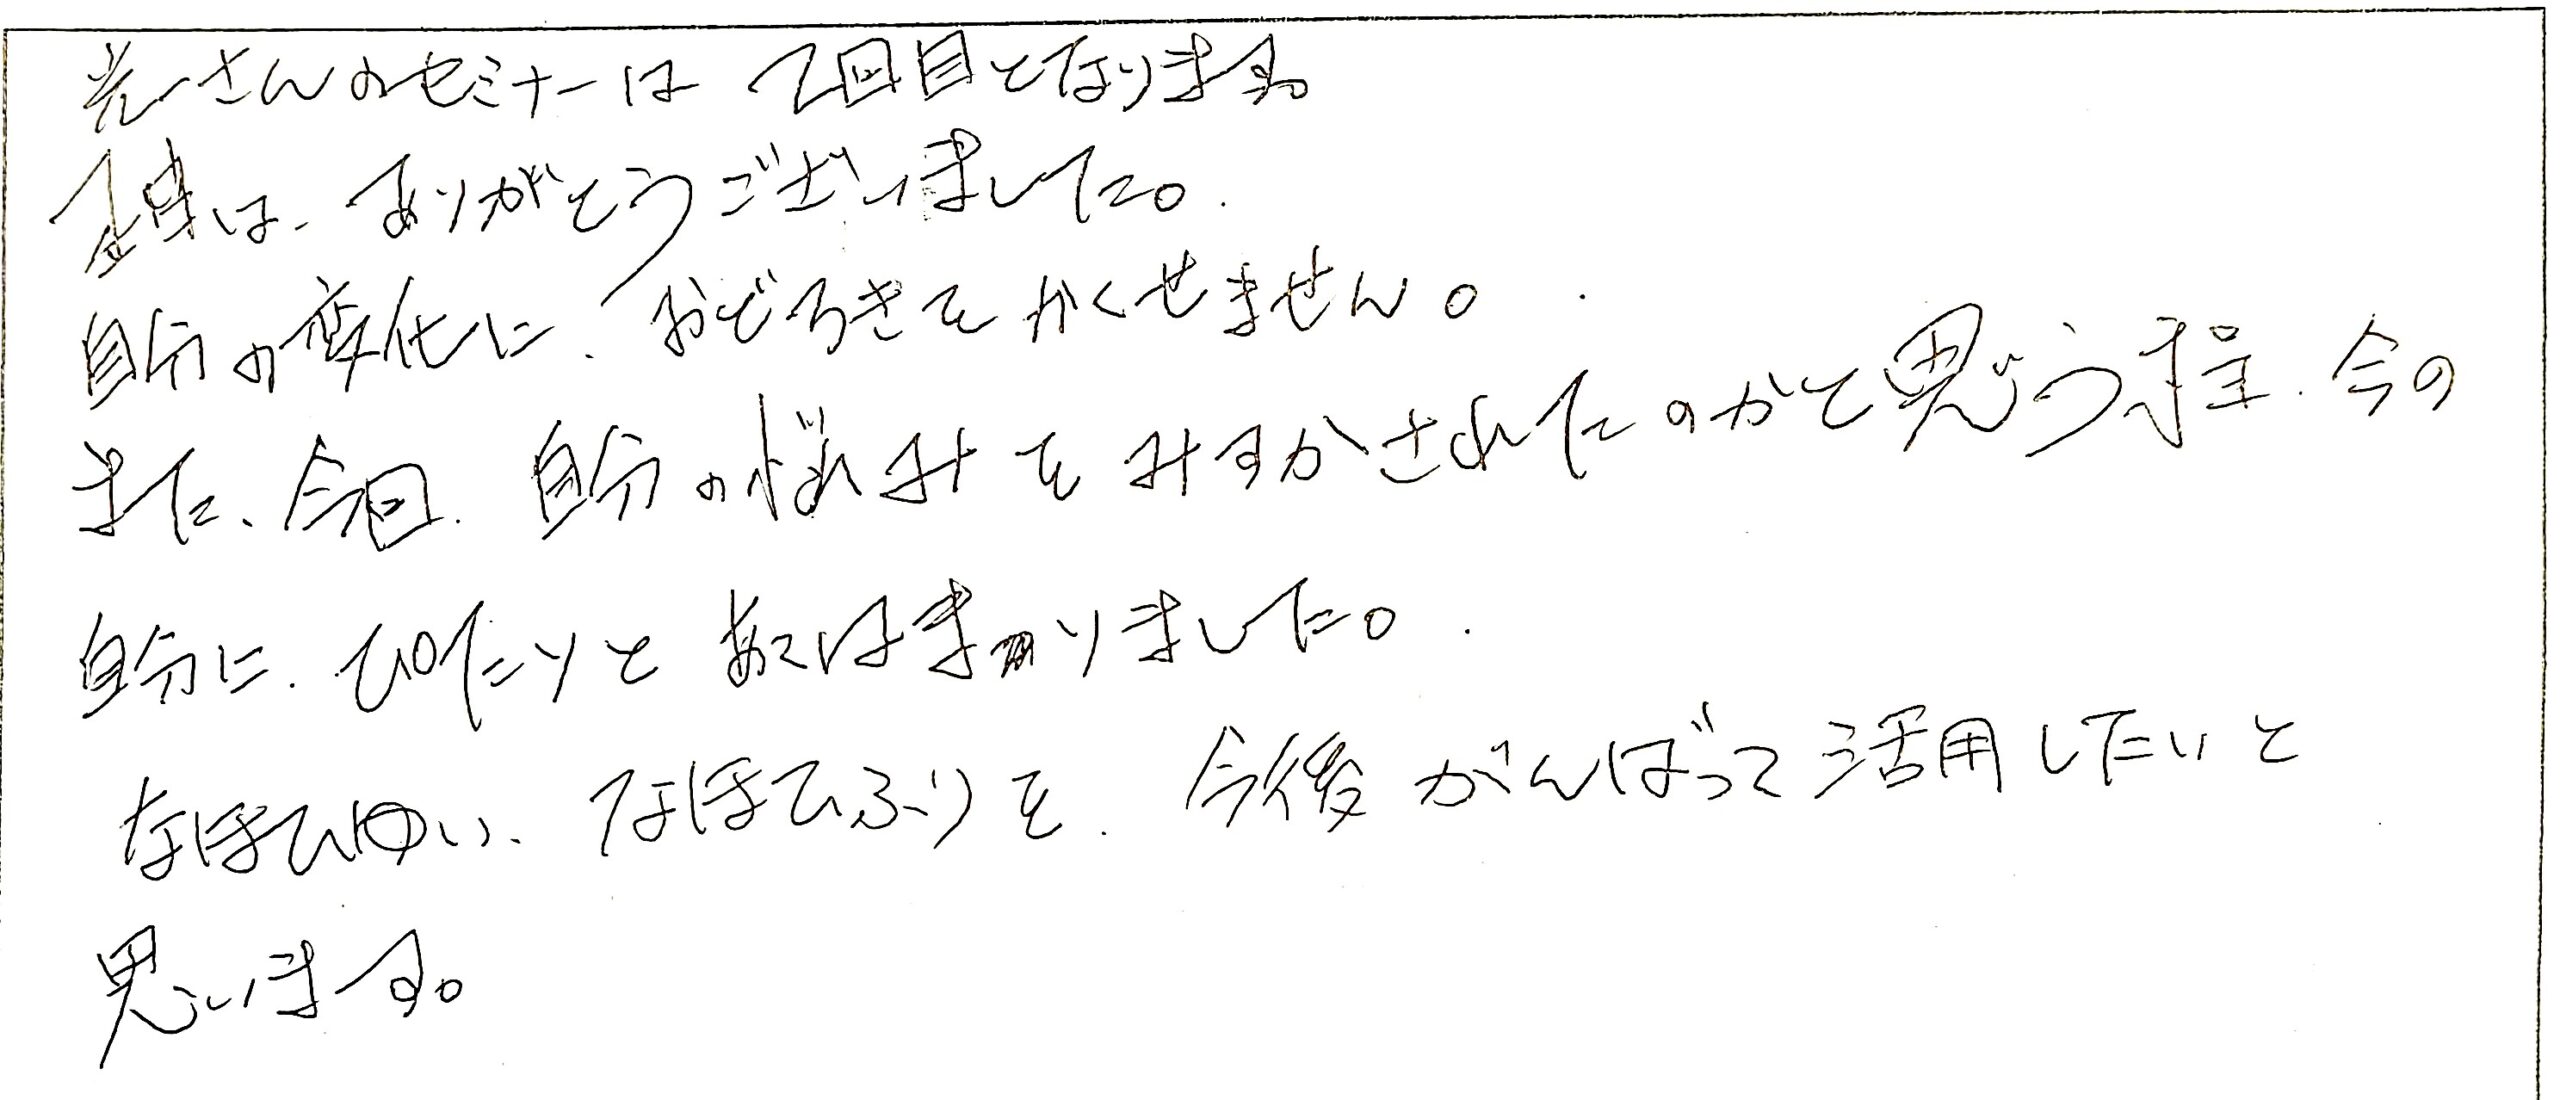 光一さんのセミナーは2回目となります。
は、ありがとうございました。
自分の変化に、おどろきをかくせません。
また、今回、自分の悩みをみすかされたのかと思う程、今の
自分に、ぴたりとあてはまりました。
なほひゆい、なほひふりを、今後がんばって活用したいと
思います。